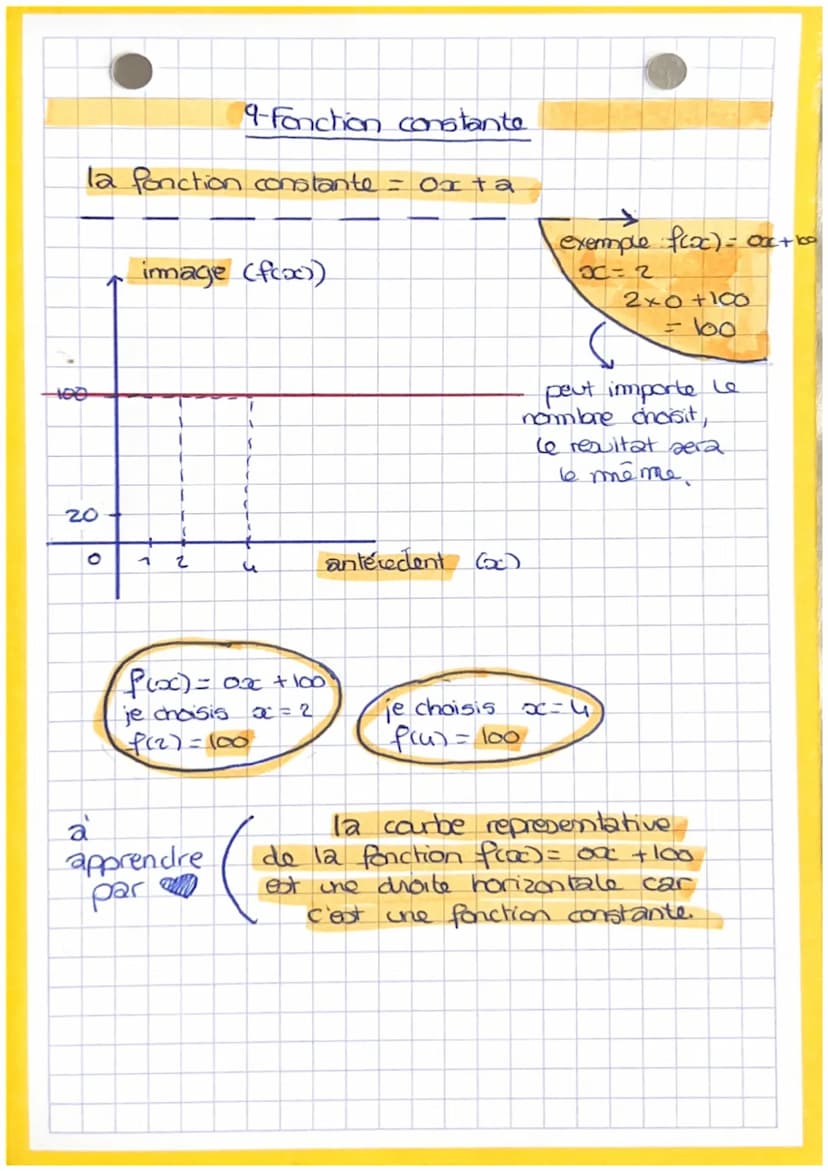 9-Fonction constante
la fonction constante = 0x + a
exemple : f(x) = 0x+100
x = 2
2×0 +100
= 100
image (f(x))
peut importe le
nombre choisit,
le resultat sera
le même.
100
20
0 1 2 4
antécedent (x)
f(x) = 0x +100
je choisis x = 2
f(2) = 100
je choisis x = 4
f(4) = 100
à
apprendre
par
la courbe representative
de la fonction f(x) = 0x +100
est une droite horizontale car
c'est une fonction constante.